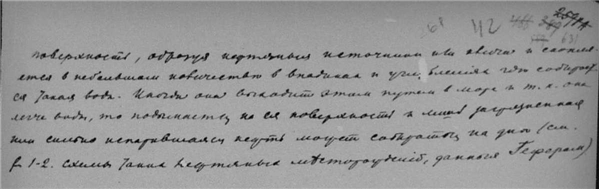 68 42 259
631
поверхность, образуя нефтяныя источники или ключи и скопля-
ется в небольшом количестве в впадинах и углублениях где собирает-
ся также вода. Иногда она выходит этим путем в море и т.к. она
легче воды, то поднимается на ея поверхность и лишь загрязненная
или сильно испарившаяся нефть может собираться на дне (см.
f. 1-2. схемы типа нефтяных месторождений, данныя Гефером)